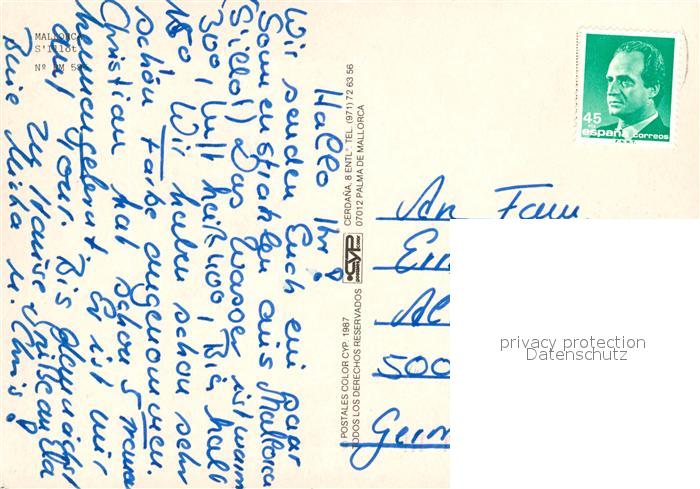 MALLORCA
S'Illot
Hallo Ihr!
Wir senden Euch ein paar
Sonnenstrahlen aus Mallorca
(S'illot) Das Wasser ist warm
30°, Luft heiß 40°, Bier kalt
Wir haben schon sehr
schön Farbe angenommen.
Christian hat schon 5 
kennengelernt. Er ist mir
auf Tour. Bis 
zu Hause Grüße an Ela
Eure Micha u. Chris!
POSTALES COLOR CYP. 1987
TODOS LOS DERECHOS RESERVADOS
CYP
CERDAÑA, 8 ENTL° TEL. (971) 72 63 56
07012 PALMA DE MALLORCA
45
españa correos
F.N.M.T.
An Fam.
500
Germ
privacy protection
Datenschutz